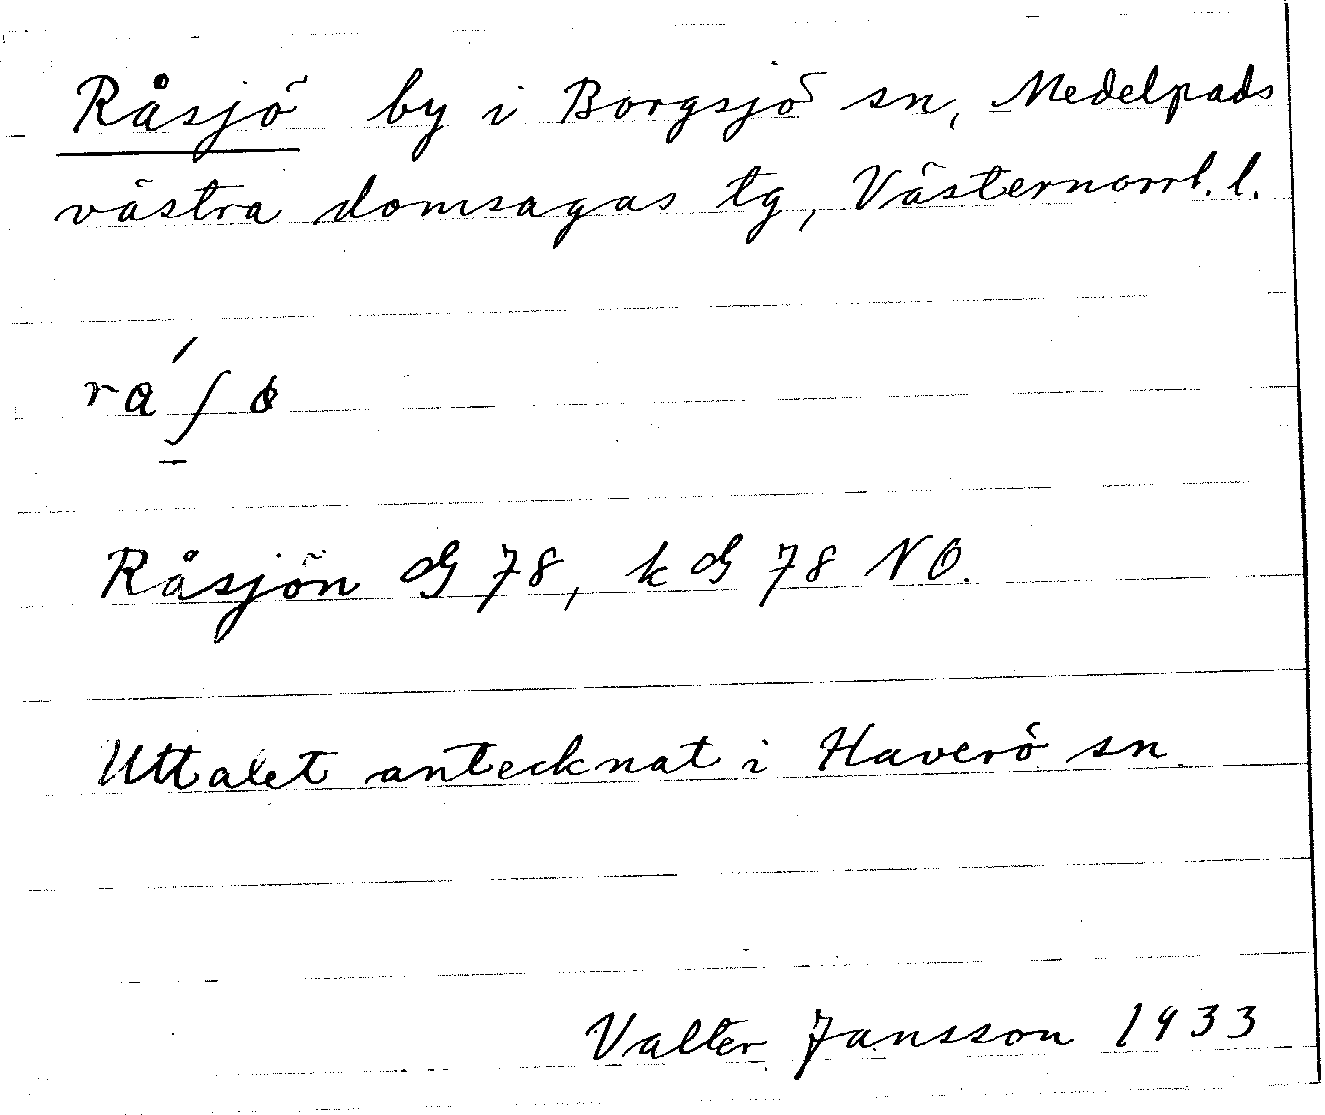 Råsjö by i Borgsjö sn, Medelpads
västra domsagas tg, Västernorrl. l.
Råsjön G 78, k G 78 NO.
Uttalet antecknat i Haverö sn.
Valter Jansson 1933